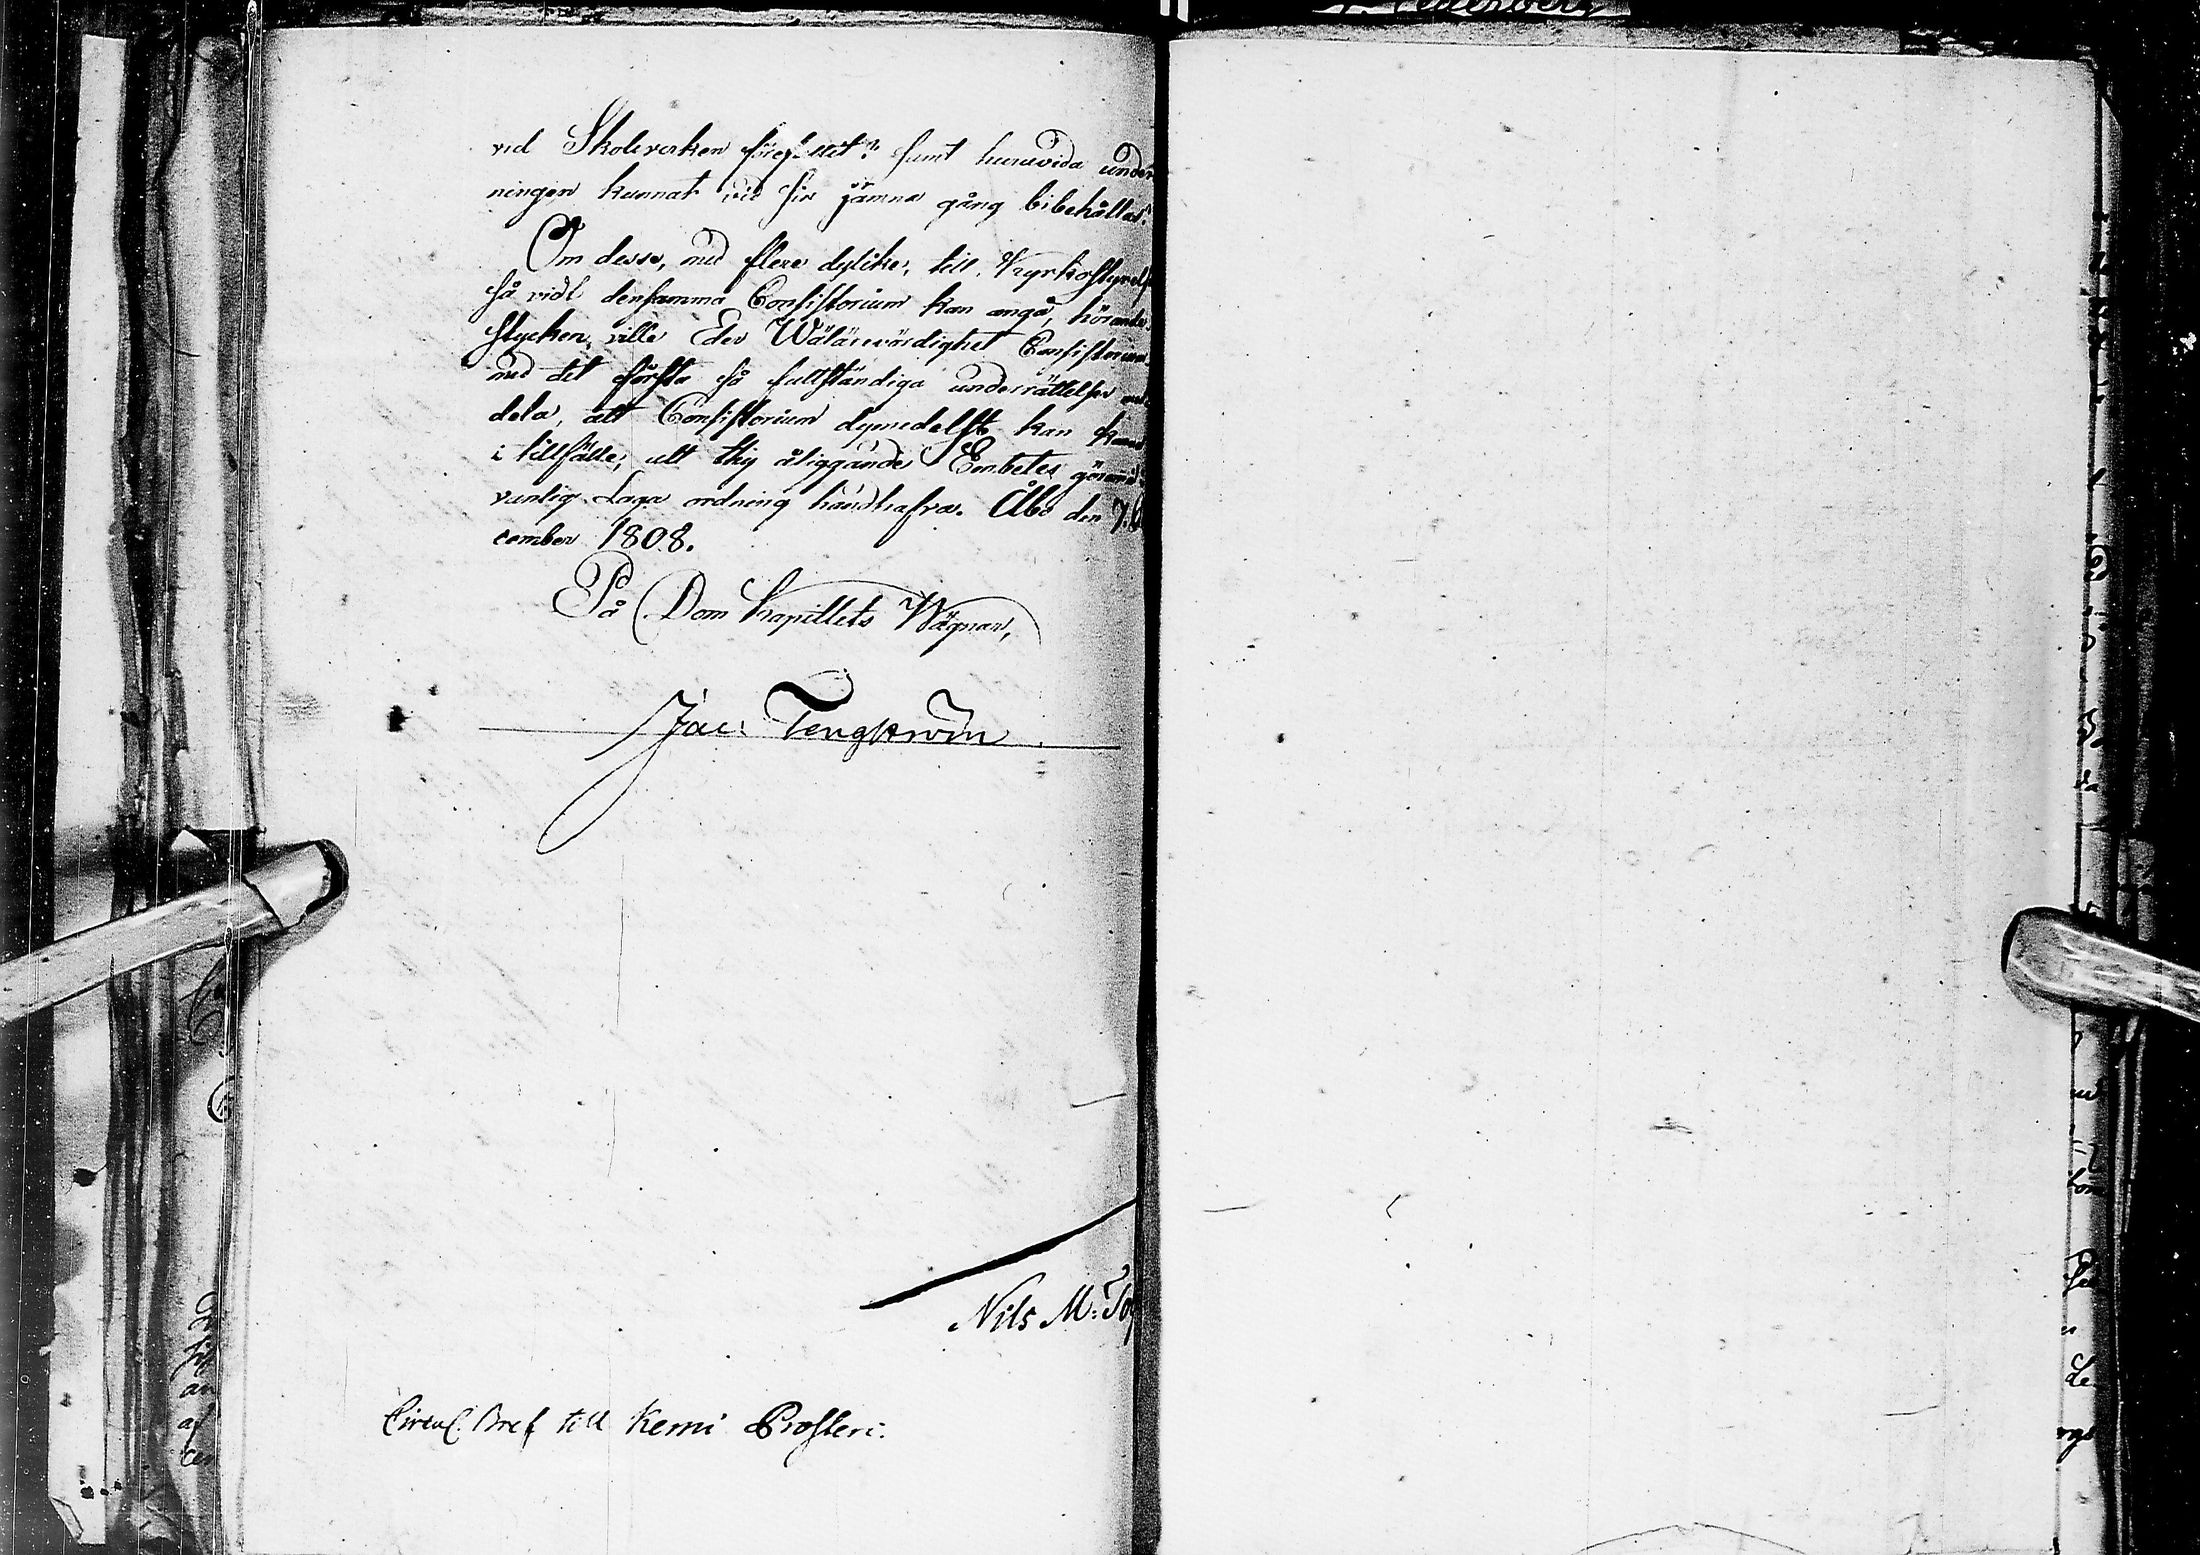 vid Skoleverken förefallit? samt huruvida under
ningen kunnat vid sin jämna gång bibehållas?
Om desse, med flere dylike, till Kyrkostyrels
så vidt densamma Consistorium kan angå, hörande
stycken, ville Eder Wälärevördighet Consistorium
med det första så fullständiga underrättelser med
dela, att Consistorium dymedelst kan komma
i tillfälle, att thy åliggande Embetes göromål
vanlig Laga ordning handhafva. Åbo den 7. De
cember 1808.
På Dom Kapitlets Wägnar,
Jac: Tengström
Nils M: Top
Circul. Bref till Kemi Prosteri.